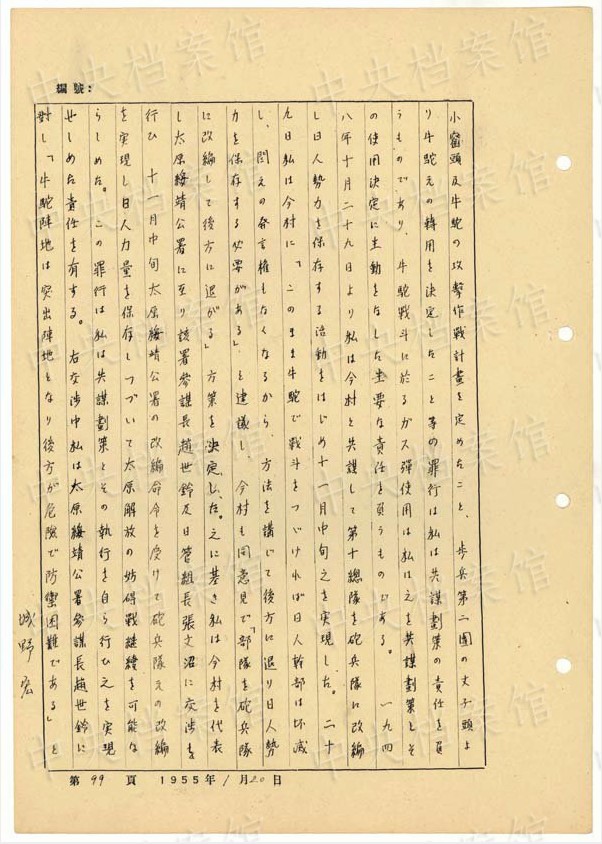 編號：
小窰頭及牛駝の攻撃作戦計畫を定めたこと、歩兵第二團の丈子頭よ
り牛駝えの轉用を決定したこと等の罪行は私は共謀劃策の責任を負
うものであり、牛駝戦斗に於るガス弾使用は私は之を共謀劃策しそ
の使用決定に主動をなした主要な責任を負うものである。 一九四
八年十月二十九日より私は今村と共謀して第十總隊を砲兵隊に改編
し日人勢力を保存する活動をはじめ十一月中旬之を実現した。二十
九日私は今村に「このまま牛駝で戦斗をつづければ日人幹部は坏滅
し、閻えの発言権もなくなるから、方法を講じて後方に退り日人勢
力を保存する必要がある」と建議し、今村も同意見で「部隊を砲兵隊
に改編して後方に退がる」方策を決定した。之に基き私は今村を代表
し太原綏靖公署に互り該署參謀長趙世鈴及日管組長張文沼に交渉を
行ひ 十一月中旬太原綏靖公署の改編命令を受けて砲兵隊えの改編
を実現し日人力量を保存しつづいて太原解放の妨碍戦継續を可能な
らしめた。この罪行は私は共謀劃策とその執行を自ら行ひ之を実現
せしめた責任を有する。右交渉中私は太原綏靖公署參謀長趙世鈴に
對し「牛駝陣地は突出陣地となり後方が危険で防禦困難である」と
城野宏
第99頁 1955年1月20日
中央档案馆